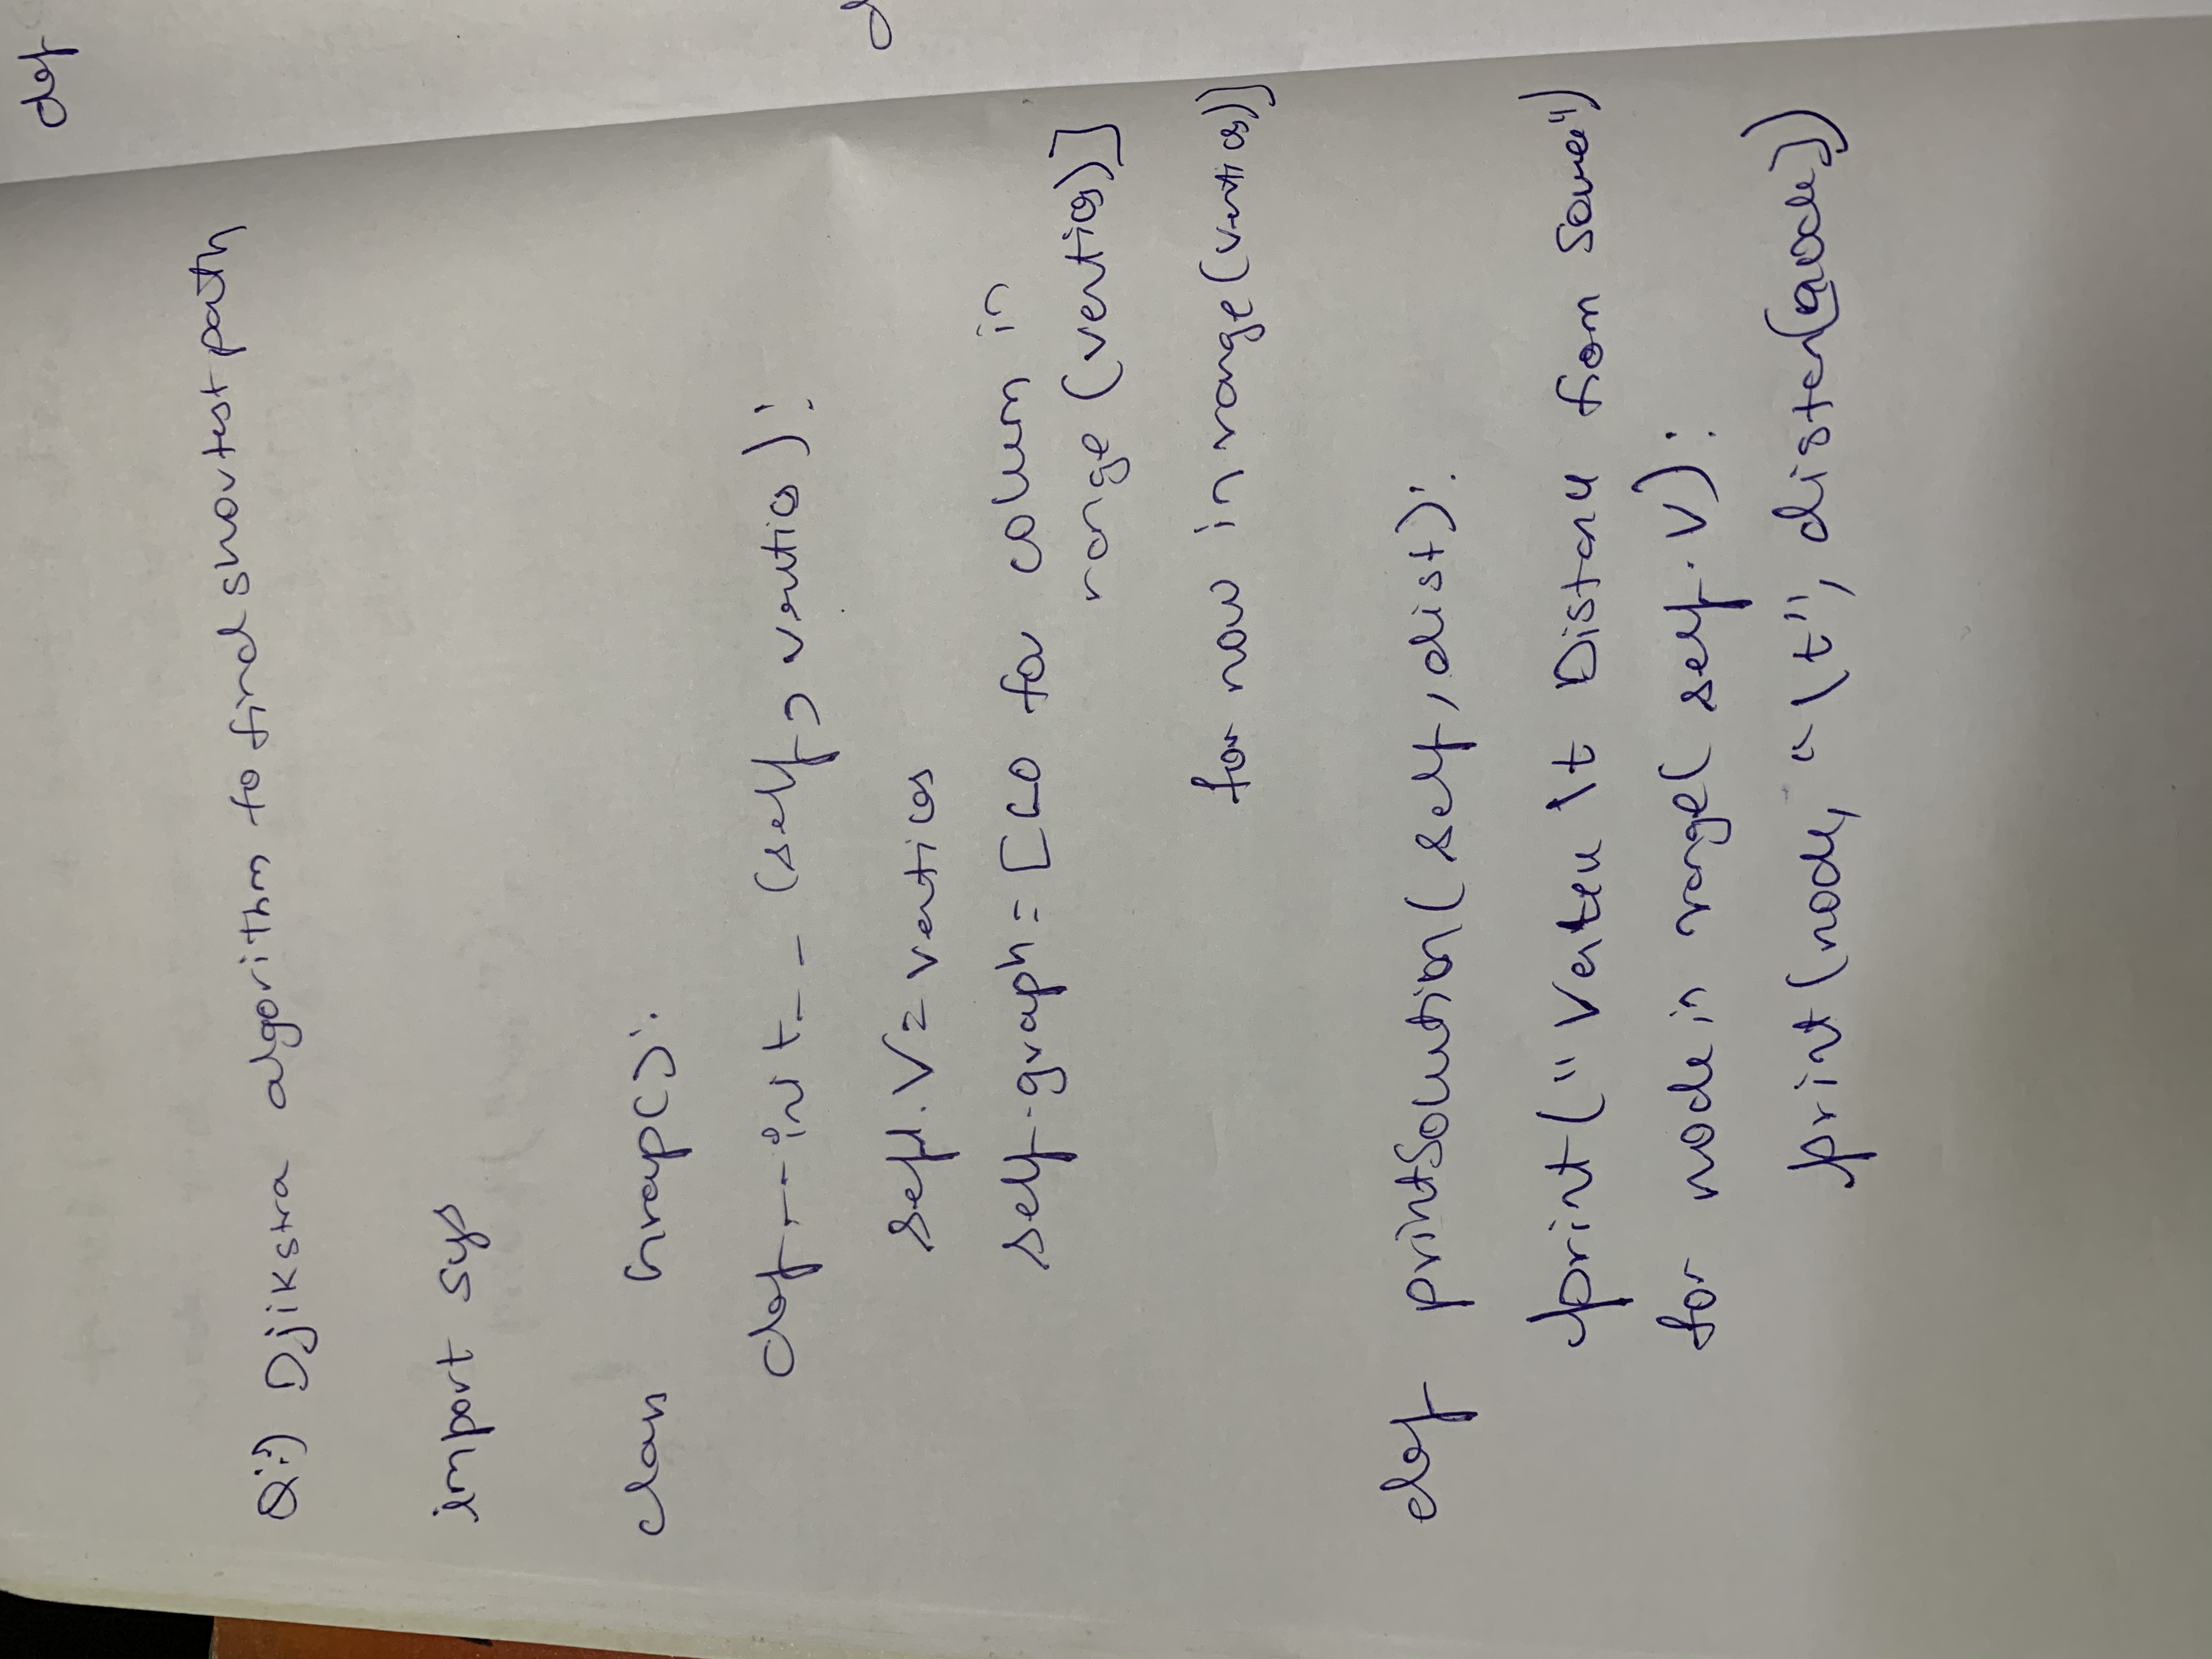 Q:) Djikstra algorithm to find shortest path
import sys
class Grap():
def __init__ (self, vertices):
sefl.V = vertices
self.graph = [[0 for colum in
range (vertices)]
for now in range (vertices)]
def printSolution( self, dist):
print(" Vertex \t Distance from Source")
for node in range( self.V):
print(node, "\t", disten[node])
def
d